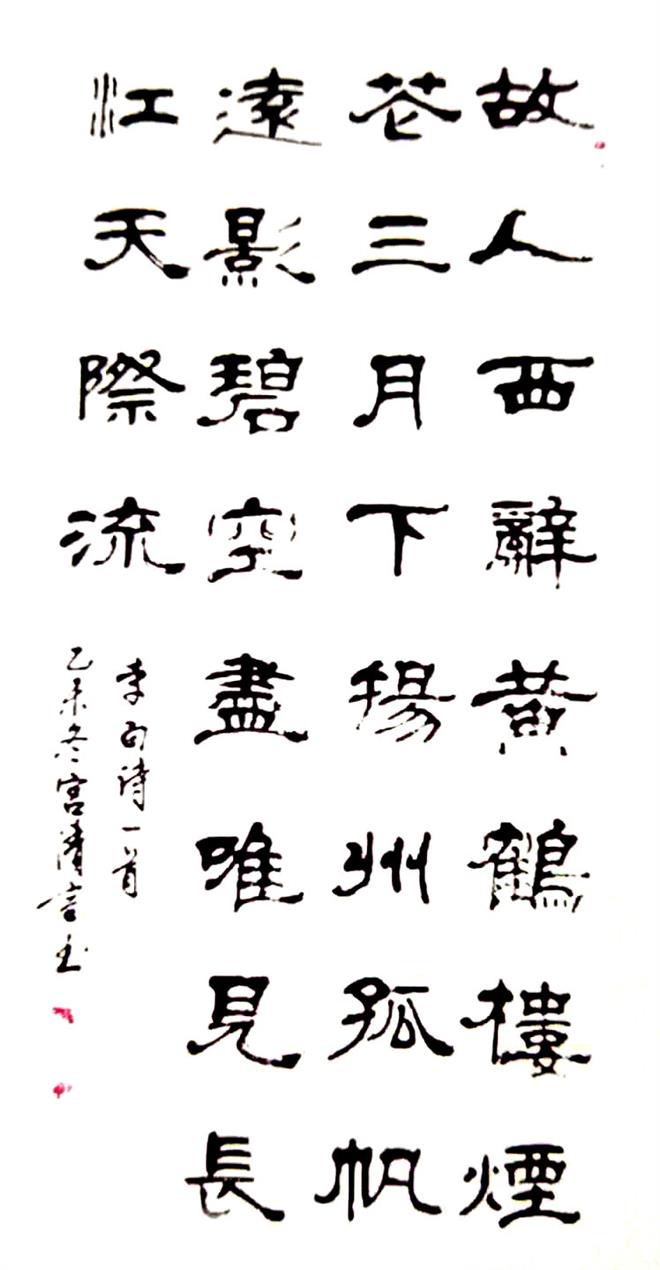 故人西辭黃鶴樓煙
花三月下揚州孤帆
遠影碧空盡唯見長
江天際流
李白詩一首
乙未冬宫清